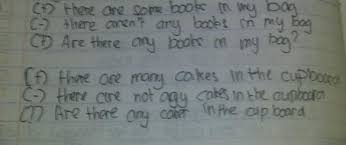 (+) there are some books in my bag
(-) there aren't any books in my bag
(?) Are there any books in my bag?
(+) there are many cakes in the cupboard
(-) there are not any cakes in the cupboard
(?) Are there any cakes in the cup board